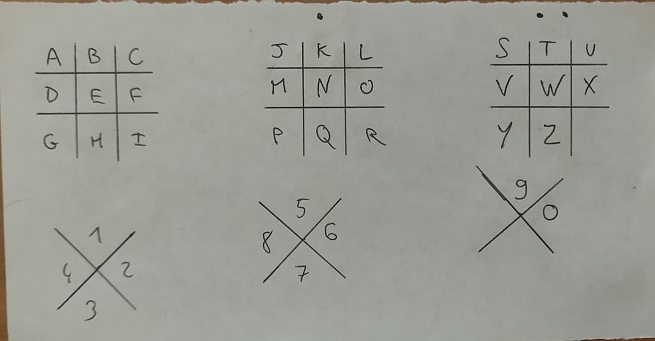 A B C
D E F
G H I
J K L
M N O
P Q R
S T U
V W X
Y Z
1
4 2
3
5
8 6
7
9
0